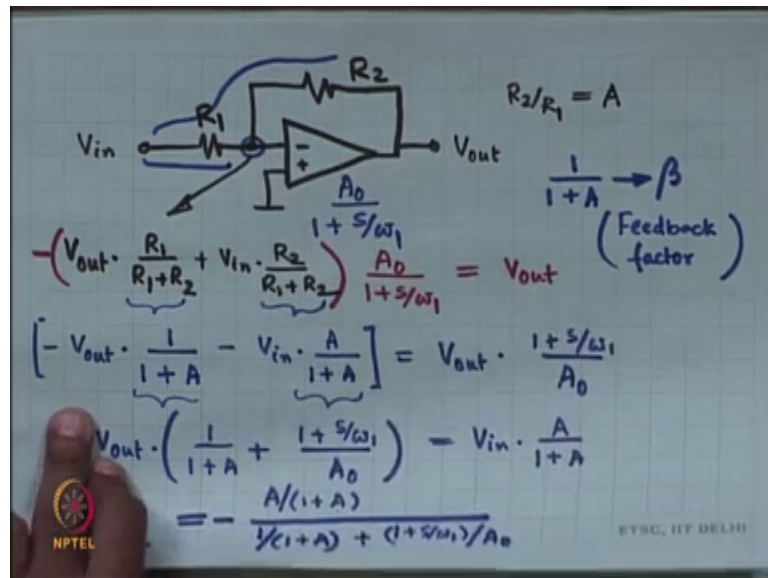 R2
R2/R1 = A
Vin
R1
-
+
Vout
A0 / 1 + s/ω1
1 / 1 + A → β
(Feedback factor)
-(Vout · R1 / R1+R2 + Vin · R2 / R1+R2) A0 / 1+s/ω1 = Vout
[- Vout · 1 / 1 + A - Vin · A / 1 + A] = Vout · 1 + s/ω1 / A0
Vout · (1 / 1 + A + 1 + s/ω1 / A0) = Vin · A / 1 + A
= - A/(1+A) / 1/(1+A) + (1+s/ω1)/A0
NPTEL
ETSC, IIT DELHI